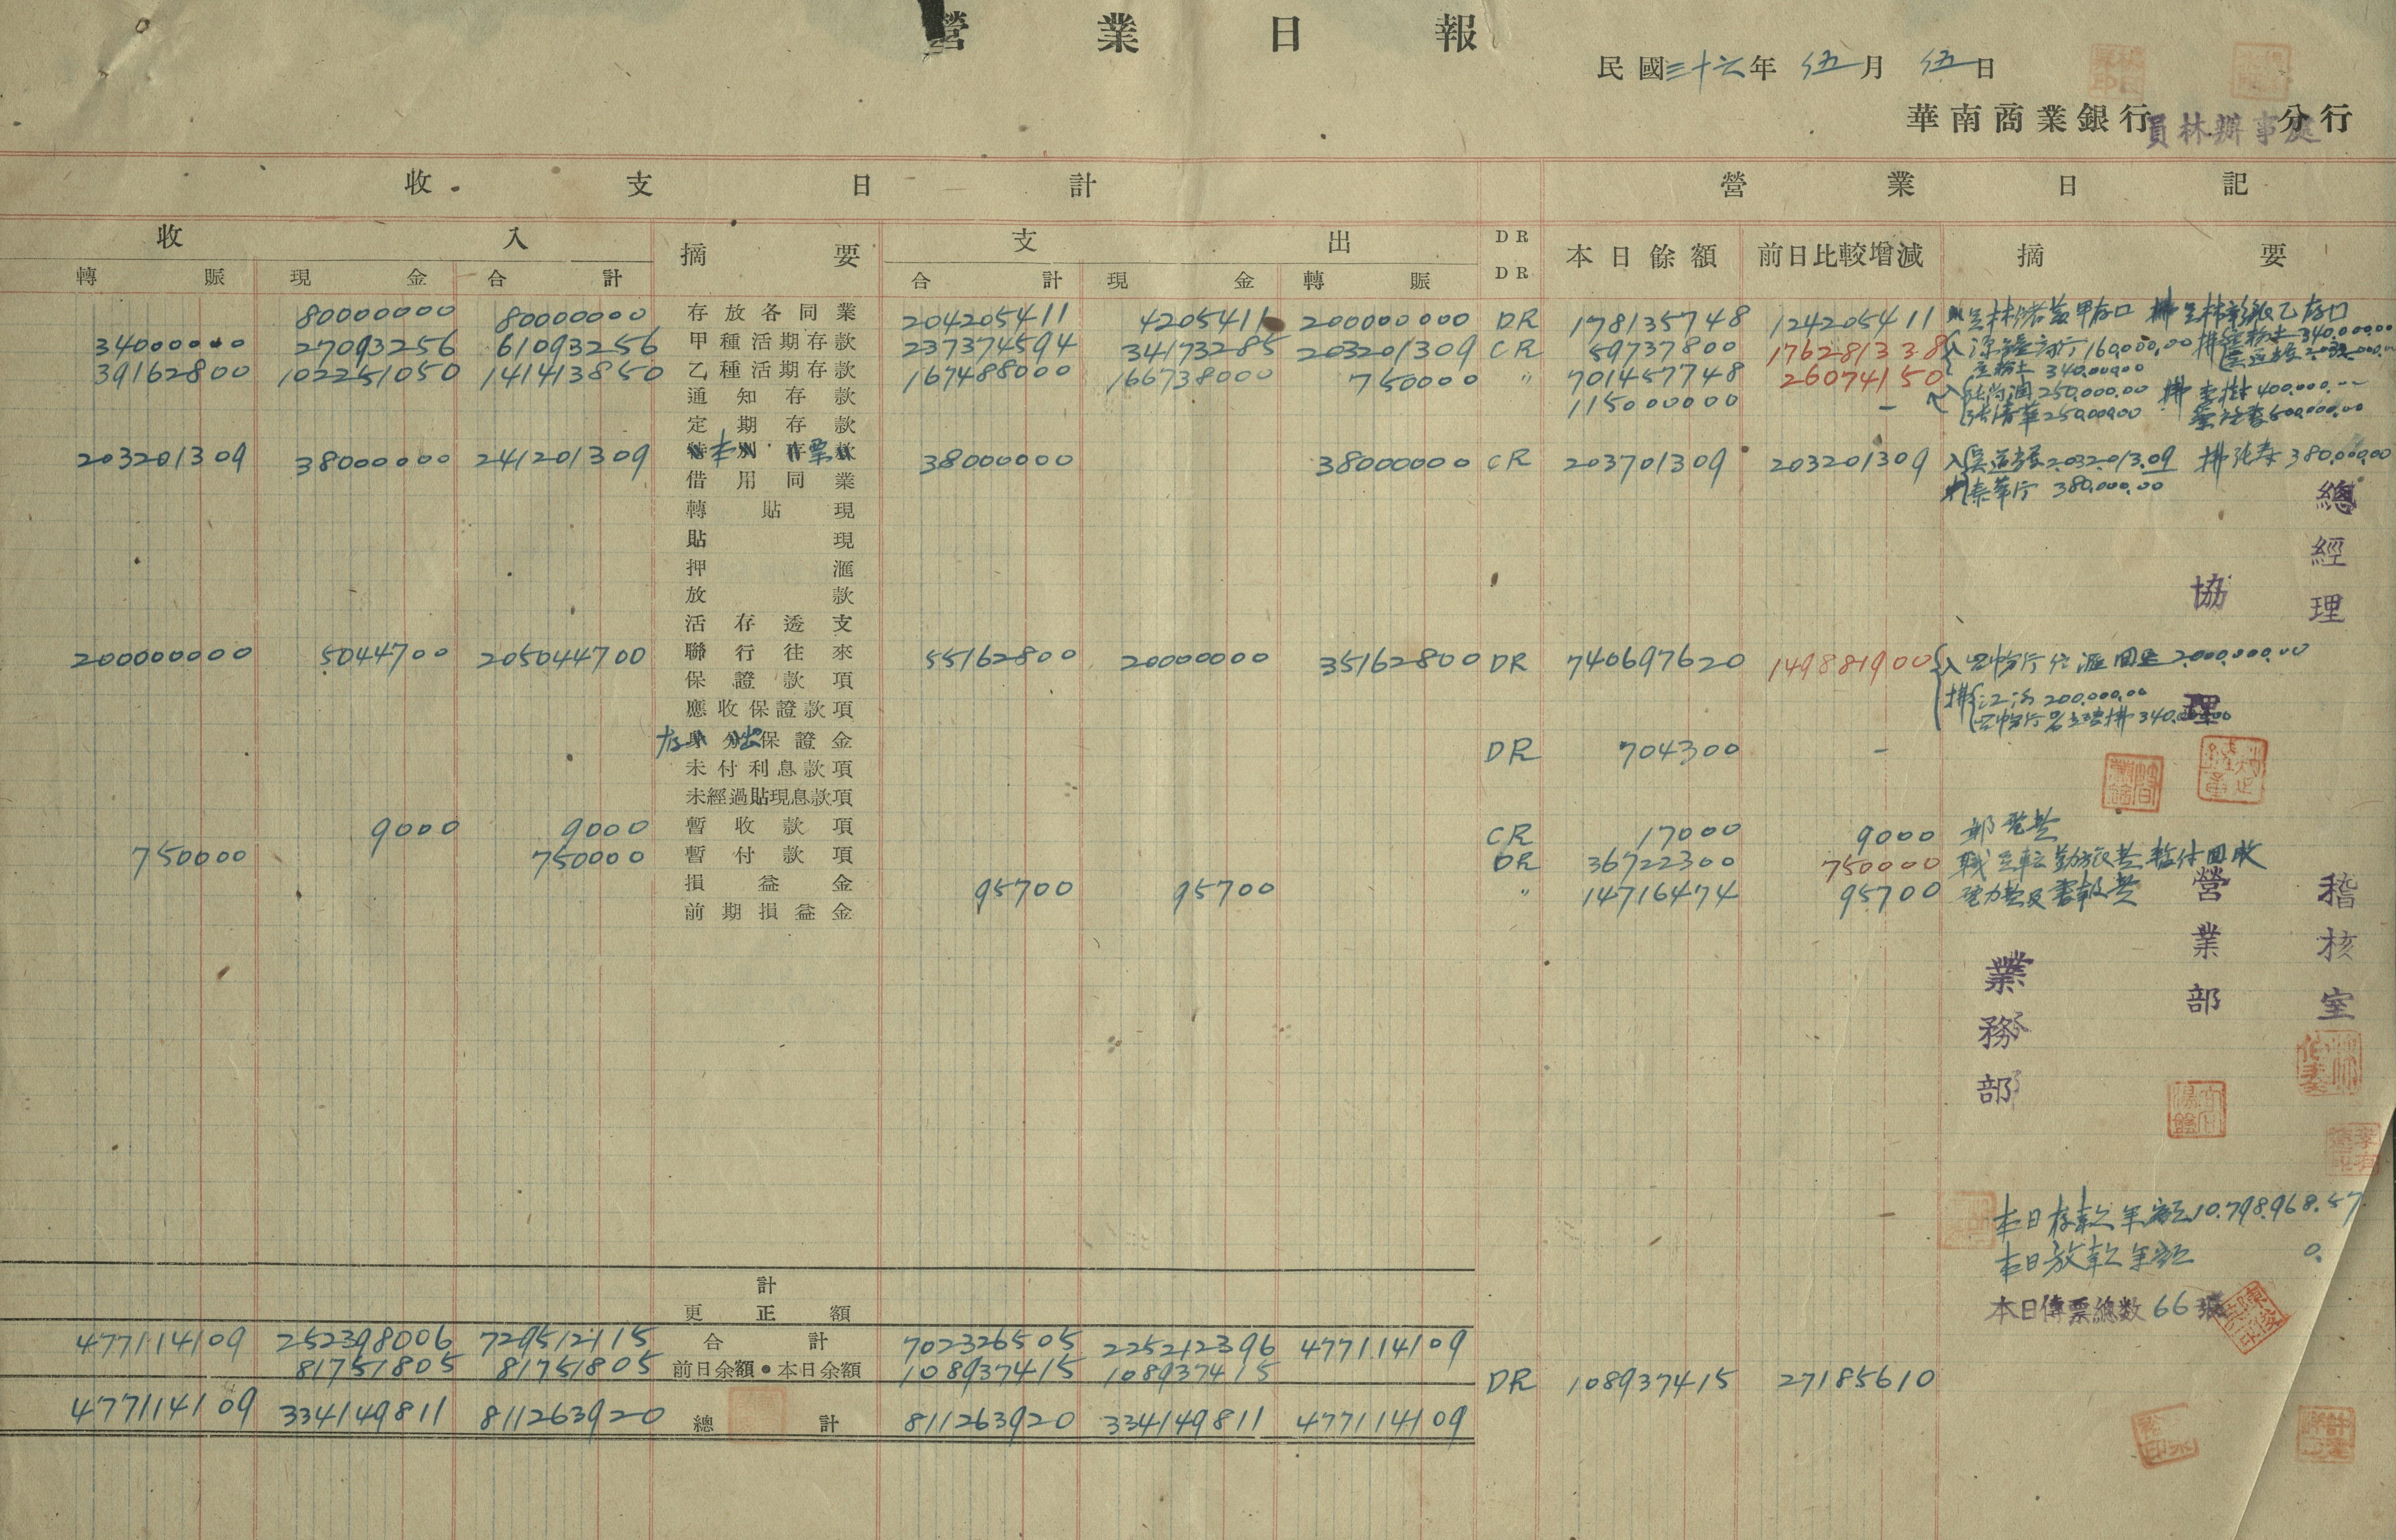 營業日報
民國三十六年 伍月 伍日
華南商業銀行 員林辦事處 分行
收支日計 營業日記
收入 摘要 支出 DR 本日餘額 前日比較增減 摘要
轉賬 現金 合計 合計 現金 轉賬 DR
80000000 80000000 存放各同業 204205411 4205411 200000000 DR 178135748 124205411
34000000 27093256 61093256 甲種活期存款 237374594 34173285 203201309 CR 59737800 176281338 160,000,00 340,000,00
39162800 102251050 141413850 乙種活期存款 167488000 166738000 750000 〃 701457748 26074150 340,000,00
通知存款 115000000 - 250,000.00 400,000.-
定期存款 250,000,00 500,000.00
203201309 38000000 241201309 本票 38000000 38000000 CR 203701309 203201309 2,032,013.09 380,000,00
借用同業 380,000,00
轉貼現
貼現
押滙
放款
活存透支
200000000 5044700 205044700 聯行往來 55162800 20000000 35162800 DR 740697620 149881900 2,000,000,00
保證款項
應收保證款項 200,000,00
存出保證金 DR 704300 - 340,000,00
未付利息款項
未經過貼現息款項
9000 9000 暫收款項 CR 17000 9000 郵電費
750000 750000 暫付款項 DR 36722300 750000 暫付回收
損益金 95700 95700 〃 14716474 95700 電力費及書報費
前期損益金
總經理
協理
稽核室
營業部
業務部
本日存款年額 10,798,968.57
本日放款年額 0.
本日傳票總数 66 張
計
更正額
477114109 252398006 729512115 合計 702326505 225212396 477114109
81751805 81751805 前日余額●本日余額 108937415 108937415 DR 108937415 27185610
477114109 334149811 811263920 總計 811263920 334149811 477114109